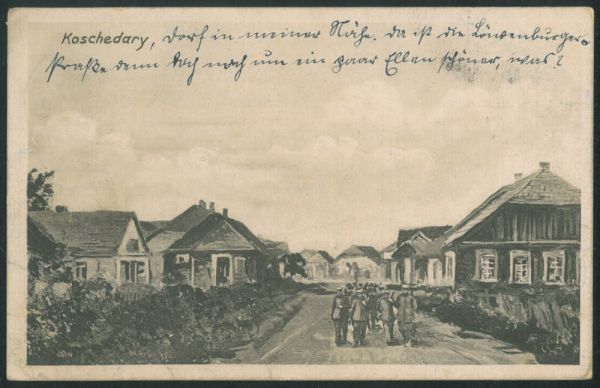 Koschedary, Dorf in meiner Nähe. Da ist die Löwenburger-
straße denn doch noch um ein paar Ellen schöner, was?